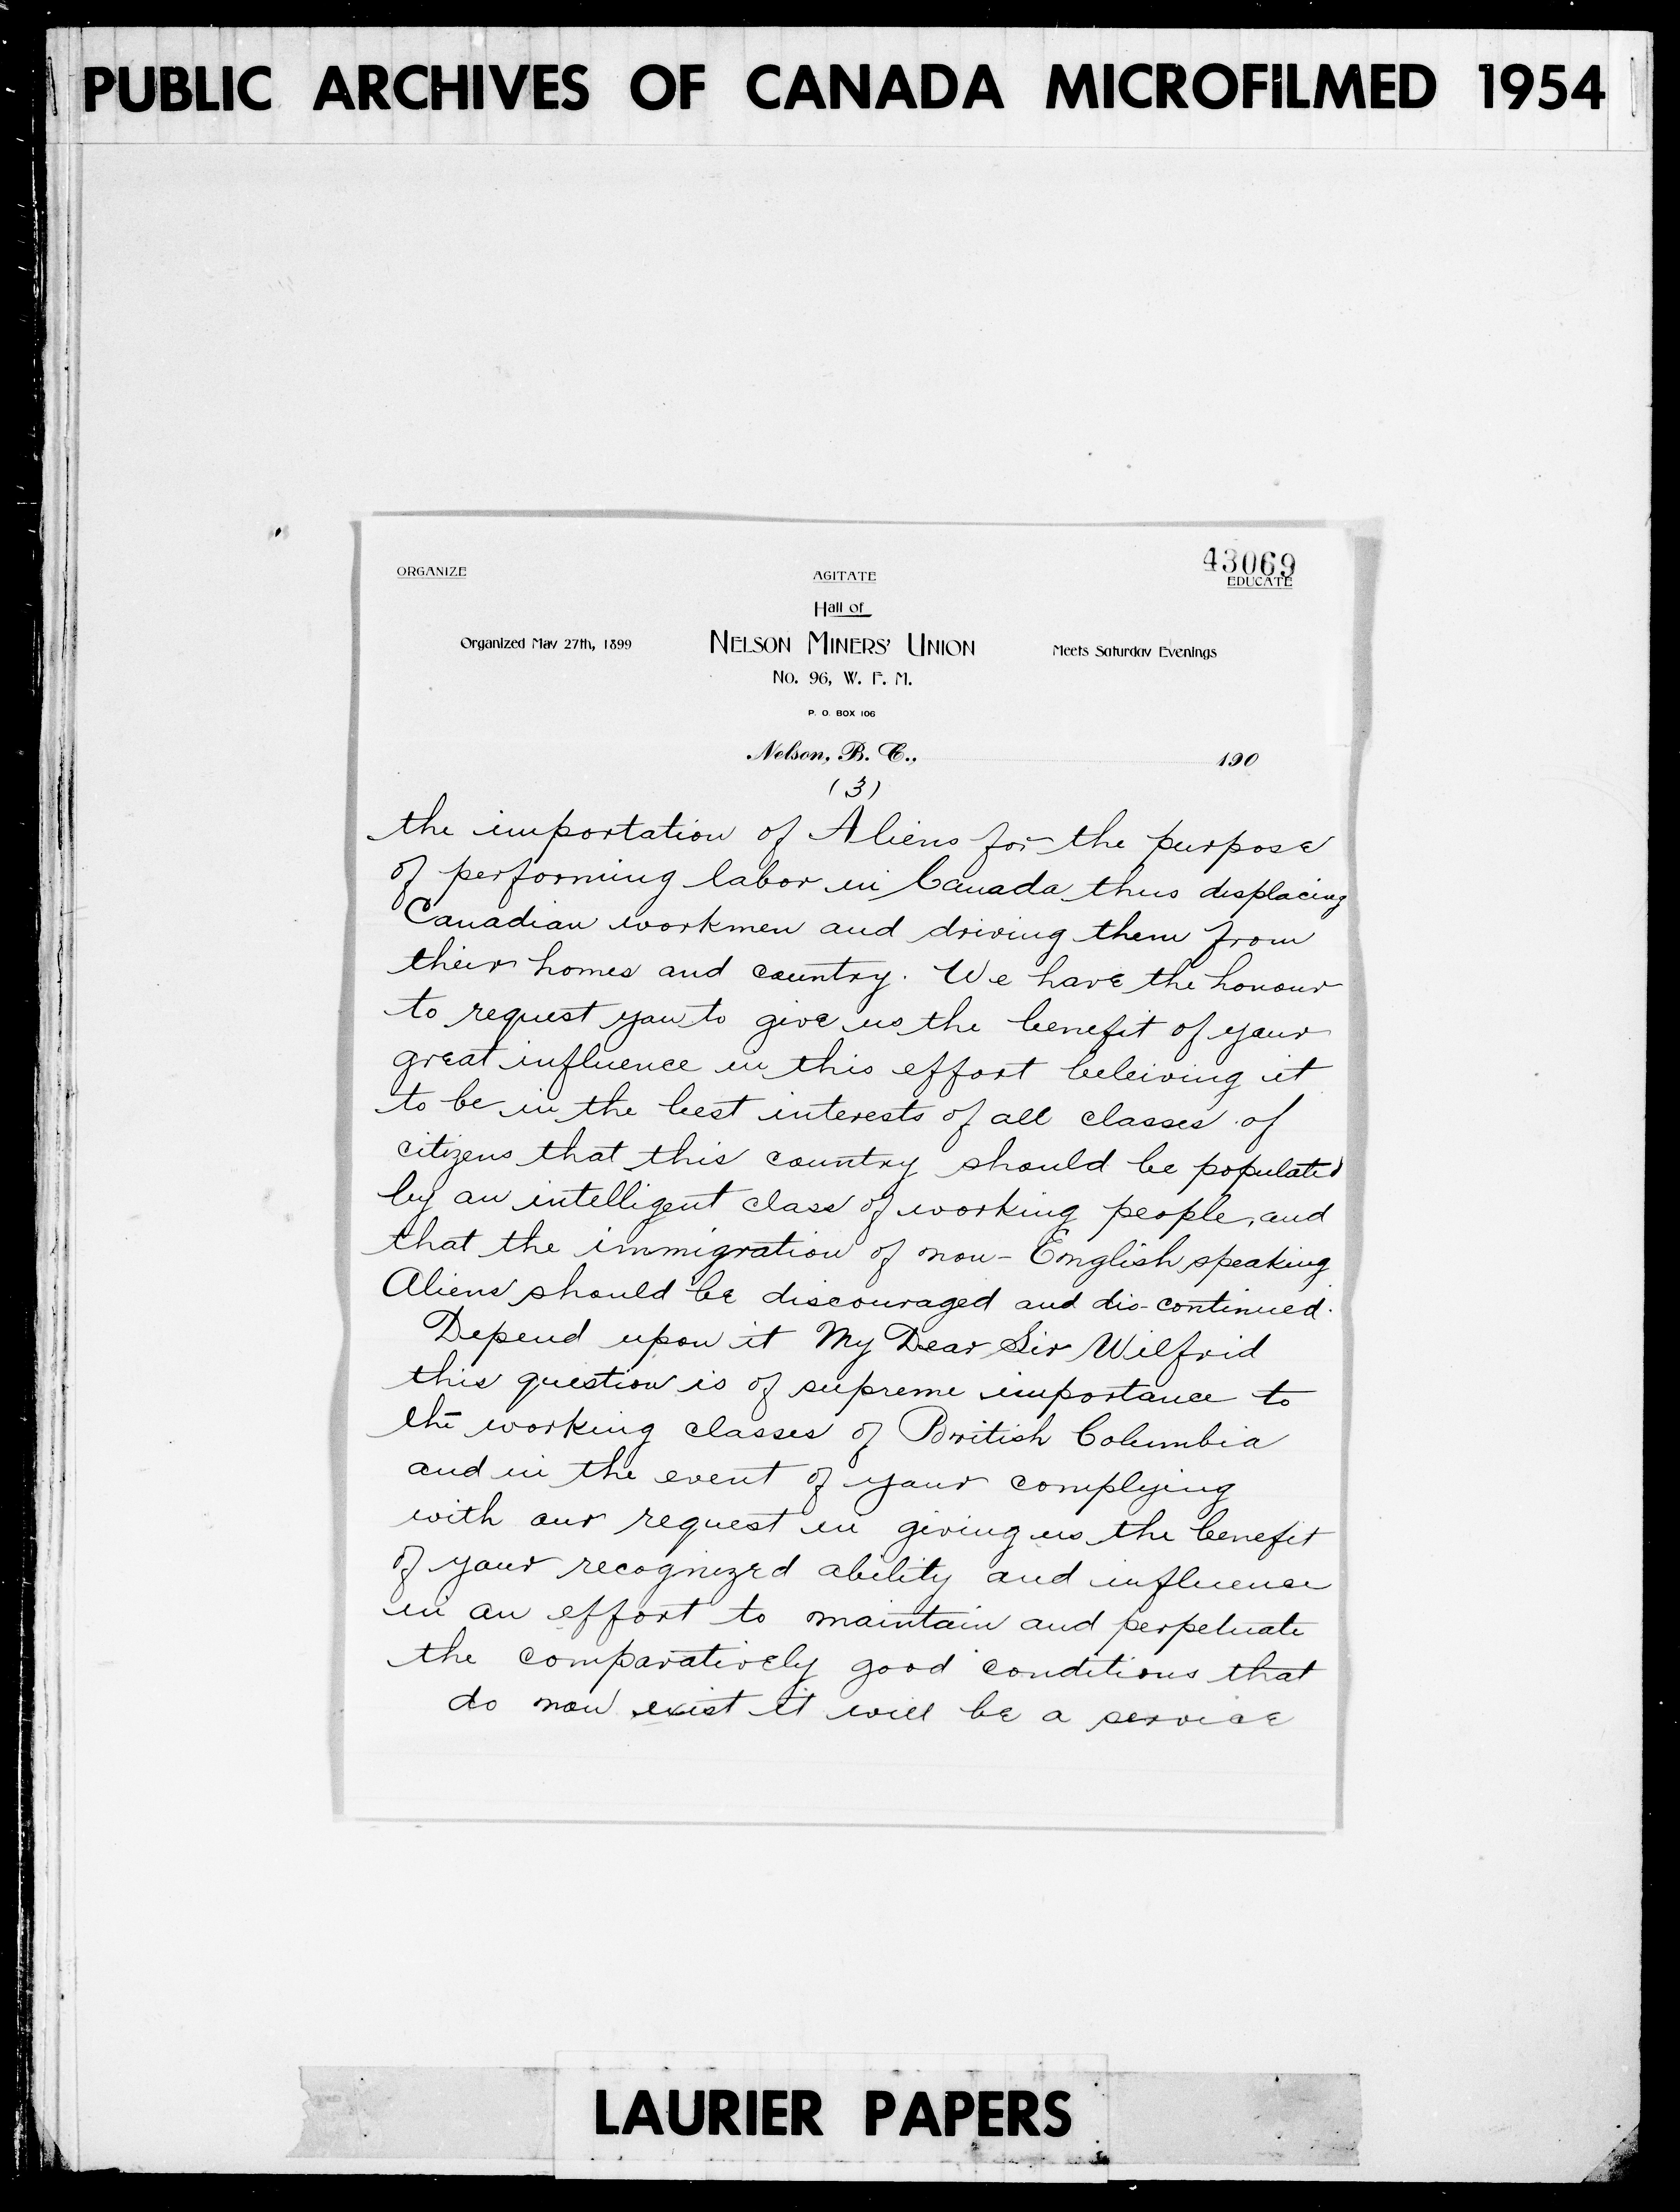 PUBLIC ARCHIVES OF CANADA MICROFILMED 1954
43069
ORGANIZE AGITATE EDUCATE
Hall of
Organized May 27th, 1899 NELSON MINERS' UNION Meets Saturday Evenings
No. 96, W. F. M.
P. O. BOX 106
Nelson, B. C., 190
(3)
the importation of Aliens for the purpose
of performing labor in Canada thus displacing
Canadian workmen and driving them from
their homes and country. We have the honour
to request you to give us the benefit of your
great influence in this effort beleiving it
to be in the best interests of all classes of
citizens that this country should be populated
by an intelligent class of working people, and
that the immigration of non-English speaking
Aliens should be discouraged and dis-continued.
Depend upon it My Dear Sir Wilfrid
this question is of supreme importance to
the working classes of British Columbia
and in the event of your complying
with our request in giving us the benefit
of your recognized ability and influence
in an effort to maintain and perpetuate
the comparatively good conditions that
do now exist it will be a service
LAURIER PAPERS